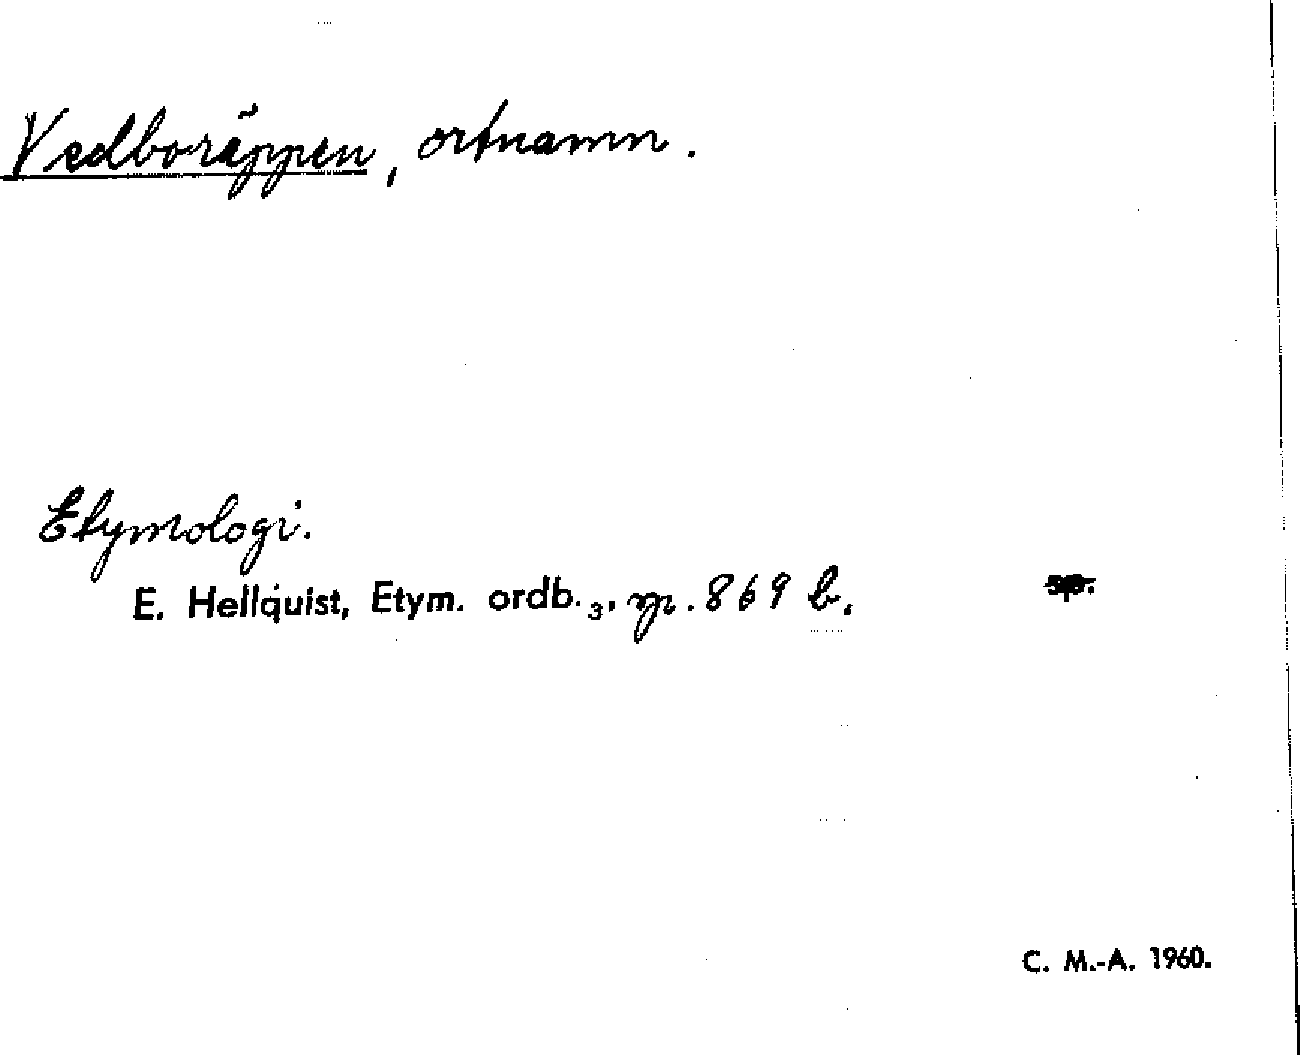 Vedboräppen, ortnamn.
Etymologi.
E. Hellquist, Etym. ordb. 3, p. 869 b.
C. M.-A. 1960.